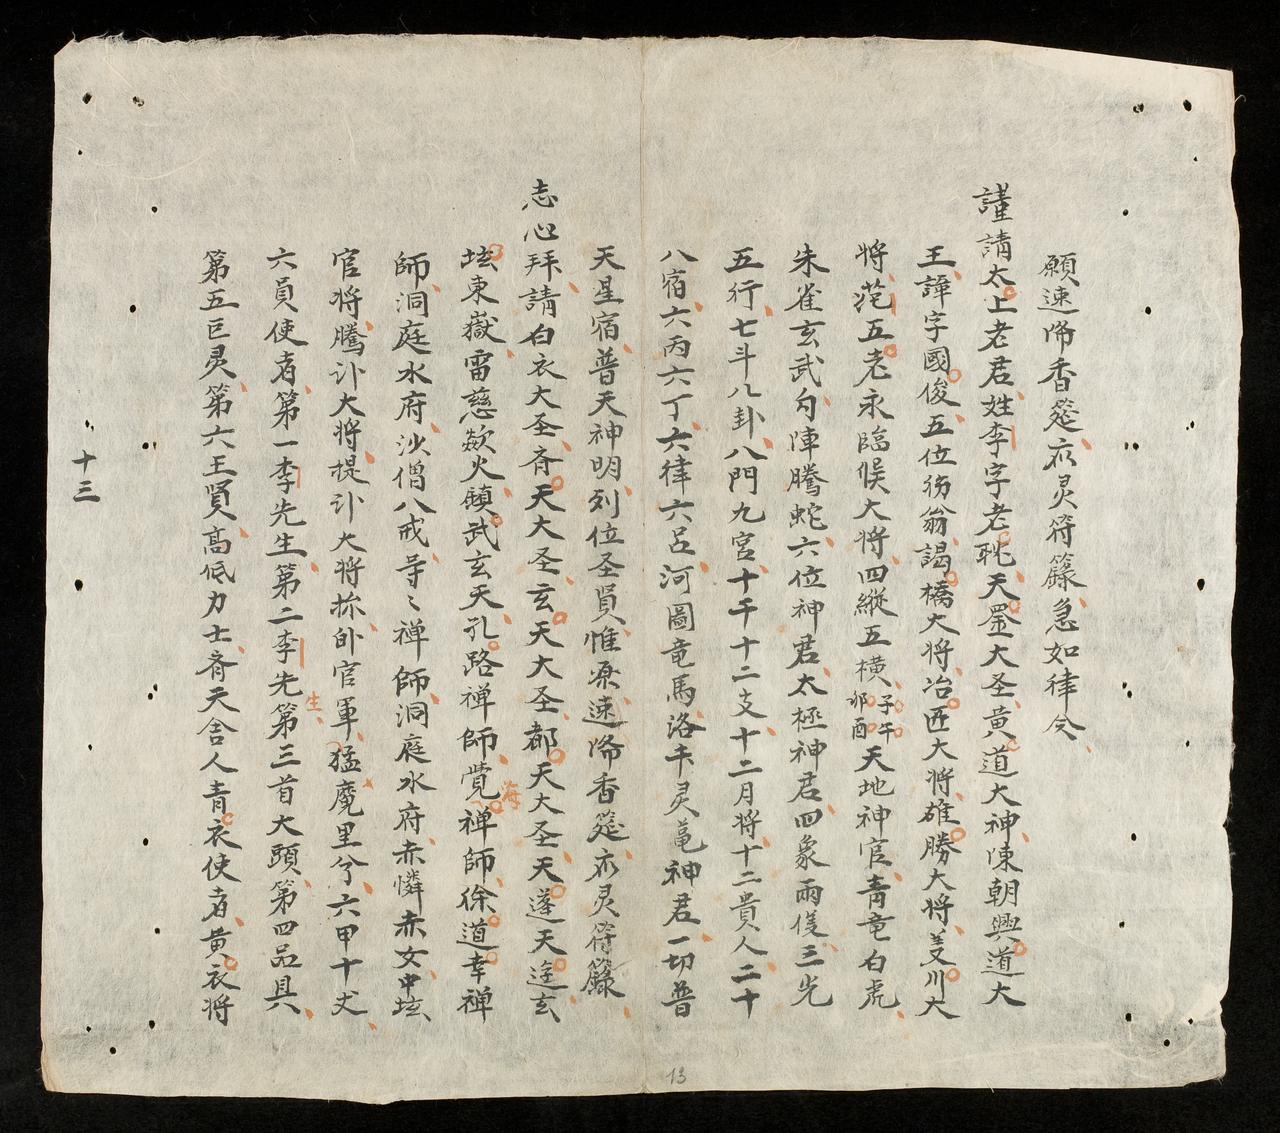 願速降香筵衣灵符籙急如律令
謹請太上老君姓李字老聃天罡大圣黄道大神陳朝興道大
王諱字國俊五位傍翁謁橋大将冶匠大将雄勝大将美川大
将范五老永臨候大将四縱五横子午卯酉天地神官青竜白虎
朱雀玄武勾陣騰蛇六位神君太極神君四象両儀三光
五行七斗八卦八門九宮十干十二支十二月将十二貴人二十
八宿六丙六丁六律六呂河圖竜馬洛书灵亀神君一切普
天星宿普天神明列位圣賢惟原速降香筵衣灵符籙
志心拜請白衣大圣斉天大圣玄天大圣都天大圣天蓬天
東嶽雷慈欻火鎮武玄天孔路禅師覺海禅師徐道幸禅
師洞庭水府沙僧八戒等〻禅師洞庭水府赤憐赤女中坛
官将騰訃大将提訃大将官軍猛魔里兮六甲十丈
六員使者第一李先生第二李先生第三首大頭第四品具
第五巨灵第六王賢高低力士斉天舍人青衣使者黄衣将
十三
13